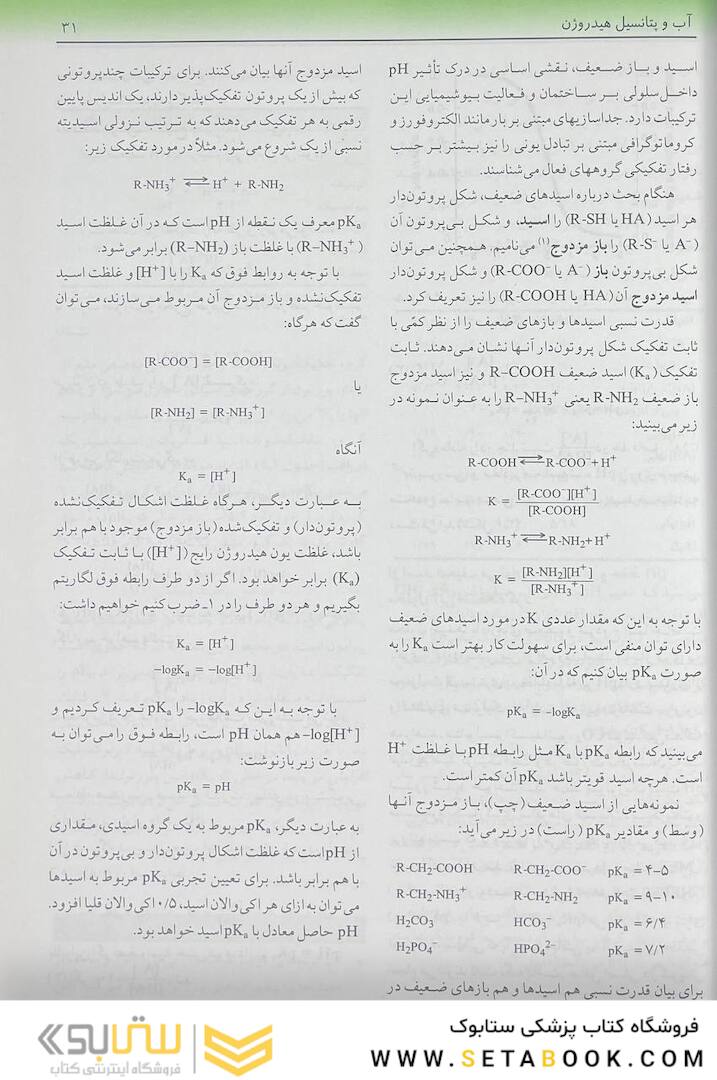 آب و پتانسیل هیدروژن
۳۱
اسید و باز ضعیف، نقشی اساسی در درک تأثیر pH
داخل سلولی بر ساختمان و فعالیت بیوشیمیایی این
ترکیبات دارد. جداسازیهای مبتنی بر بار مانند الکتروفورز و
کروماتوگرافی مبتنی بر تبادل یونی را نیز بیشتر بر حسب
رفتار تفکیکی گروههای فعال می‌شناسند.
هنگام بحث درباره اسیدهای ضعیف، شکل پروتون‌دار
هر اسید (HA یا R-SH) را اسید، و شکل بی‌پروتون آن
(A⁻ یا R-S⁻) را باز مزدوج(۱) می‌نامیم. همچنین می‌توان
شکل بی‌پروتون باز (A⁻ یا R-COO⁻) و شکل پروتون‌دار
اسید مزدوج آن (HA یا R-COOH) را نیز تعریف کرد.
قدرت نسبی اسیدها و بازهای ضعیف را از نظر کمّی با
ثابت تفکیک شکل پروتون‌دار آنها نشان می‌دهند. ثابت
تفکیک (Kₐ) اسید ضعیف R–COOH و نیز اسید مزدوج
باز ضعیف R-NH₂ یعنی R–NH₃⁺ را به عنوان نمونه در
زیر می‌بینید:
R-COOH ⇌ R-COO⁻ + H⁺
K = [R-COO⁻][H⁺]
[R-COOH]
R-NH₃⁺ ⇌ R-NH₂ + H⁺
K = [R-NH₂][H⁺]
[R-NH₃⁺]
با توجه به این که مقدار عددی K در مورد اسیدهای ضعیف
دارای توان منفی است، برای سهولت کار بهتر است Kₐ را به
صورت pKₐ بیان کنیم که در آن:
pKₐ = –logKₐ
می‌بینید که رابطه pKₐ با Kₐ مثل رابطه pH با غلظت H⁺
است. هرچه اسید قویتر باشد pKₐ آن کمتر است.
نمونه‌هایی از اسید ضعیف (چپ)، باز مزدوج آنها
(وسط) و مقادیر pKₐ (راست) در زیر می‌آید:
R-CH₂-COOH R-CH₂-COO⁻ pKₐ = ۴–۵
R-CH₂-NH₃⁺ R-CH₂-NH₂ pKₐ = ۹–۱۰
H₂CO₃ HCO₃⁻ pKₐ = ۶/۴
H₂PO₄⁻ HPO₄²⁻ pKₐ = ۷/۲
برای بیان قدرت نسبی هم اسیدها و هم بازهای ضعیف در
اسید مزدوج آنها بیان می‌کنند. برای ترکیبات چندپروتونی
که بیش از یک پروتون تفکیک‌پذیر دارند، یک اندیس پایین
رقمی به هر تفکیک می‌دهند که به ترتیب نزولی اسیدیته
نسبی از یک شروع می‌شود. مثلاً در مورد تفکیک زیر:
R-NH₃⁺ ⇌ H⁺ + R-NH₂
pKₐ معرف یک نقطه از pH است که در آن غلظت اسید
(R–NH₃⁺) با غلظت باز (R–NH₂) برابر می‌شود.
با توجه به روابط فوق که Kₐ را با [H⁺] و غلظت اسید
تفکیک‌نشده و باز مزدوج آن مربوط می‌سازند، می‌توان
گفت که هرگاه:
[R-COO⁻] = [R-COOH]
یا
[R-NH₂] = [R-NH₃⁺]
آنگاه
Kₐ = [H⁺]
به عبارت دیگر، هرگاه غلظت اشکال تفکیک‌نشده
(پروتون‌دار) و تفکیک‌شده (باز مزدوج) موجود با هم برابر
باشد، غلظت یون هیدروژن رایج ([H⁺]) با ثابت تفکیک
(Kₐ) برابر خواهد بود. اگر از دو طرف رابطه فوق لگاریتم
بگیریم و هر دو طرف را در ۱- ضرب کنیم خواهیم داشت:
Kₐ = [H⁺]
–logKₐ = –log[H⁺]
با توجه به این که –logKₐ را pKₐ تعریف کردیم و
–log[H⁺] هم همان pH است، رابطه فوق را می‌توان به
صورت زیر بازنوشت:
pKₐ = pH
به عبارت دیگر، pKₐ مربوط به یک گروه اسیدی، مقداری
از pH است که غلظت اشکال پروتون‌دار و بی‌پروتون در آن
با هم برابر باشد. برای تعیین تجربی pKₐ مربوط به اسیدها
می‌توان به ازای هر اکی‌والان اسید، ۰/۵ اکی‌والان قلیا افزود.
pH حاصل معادل با pKₐ اسید خواهد بود.
فروشگاه کتاب پزشکی ستابوک
WWW.SETABOOK.COM
ستابوک
فروشگاه اینترنتی کتاب